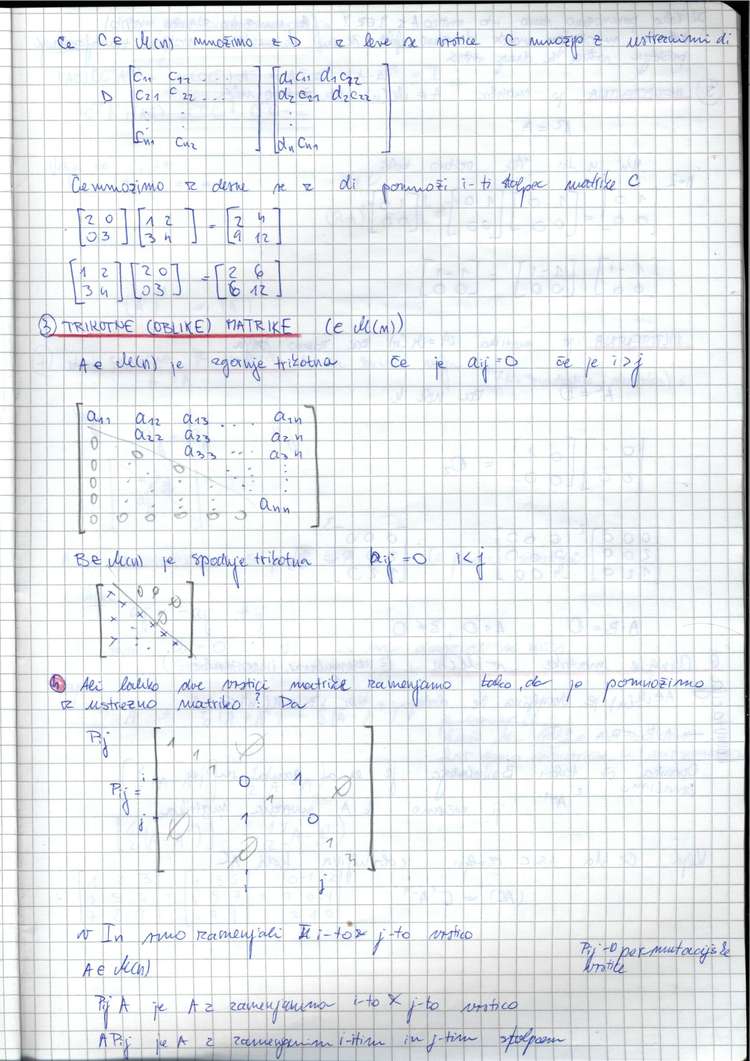 Če C ∈ M(n) množimo z D z leve se vrstice C množijo z ustreznimi di
D [c11 c12 ...] [d1c11 d1c22]
[c21 c22 ...] [d2c21 d2c22]
[: :] [:]
[cn1 cn2] [dncn1]
Če množimo z desne se z di pomnoži i-ti stolpec matrike C
[2 0] [1 2] = [2 4]
[0 3] [3 4] [9 12]
[1 2] [2 0] = [2 6]
[3 4] [0 3] [6 12]
③ TRIKOTNE (OBLIKE) MATRIKE (∈ M(n))
A ∈ M(n) je zgornje trikotna če je aij = 0 če je i > j
a11 a12 a13 .... a1n
0 a22 a23 a2n
0 0 a33 ... a3n
0 : : 0 : : :
0 : : : : :
0 : : : : ann
0 0 0 0 0 0
B ∈ M(n) je spodnje trikotna aij = 0 i < j
x 0 0
x 0
x x 0
x : x
x : x x
④ Ali lahko dve vrstici matrike zamenjamo tako, da jo pomnožimo
z ustrezno matriko? Da
Pij 1 0
1
1
i 0 1
Pij = 1 0
j 0 1 0
0 1
1
i j
v In smo zamenjali i-to x j-to vrstico
Pij → permutacijske
A ∈ M(n) vrstice
Pij A je A z zamenjanima i-to x j-to vrstico
A Pij je A z zamenjanim i-itim in j-tim stolpcem